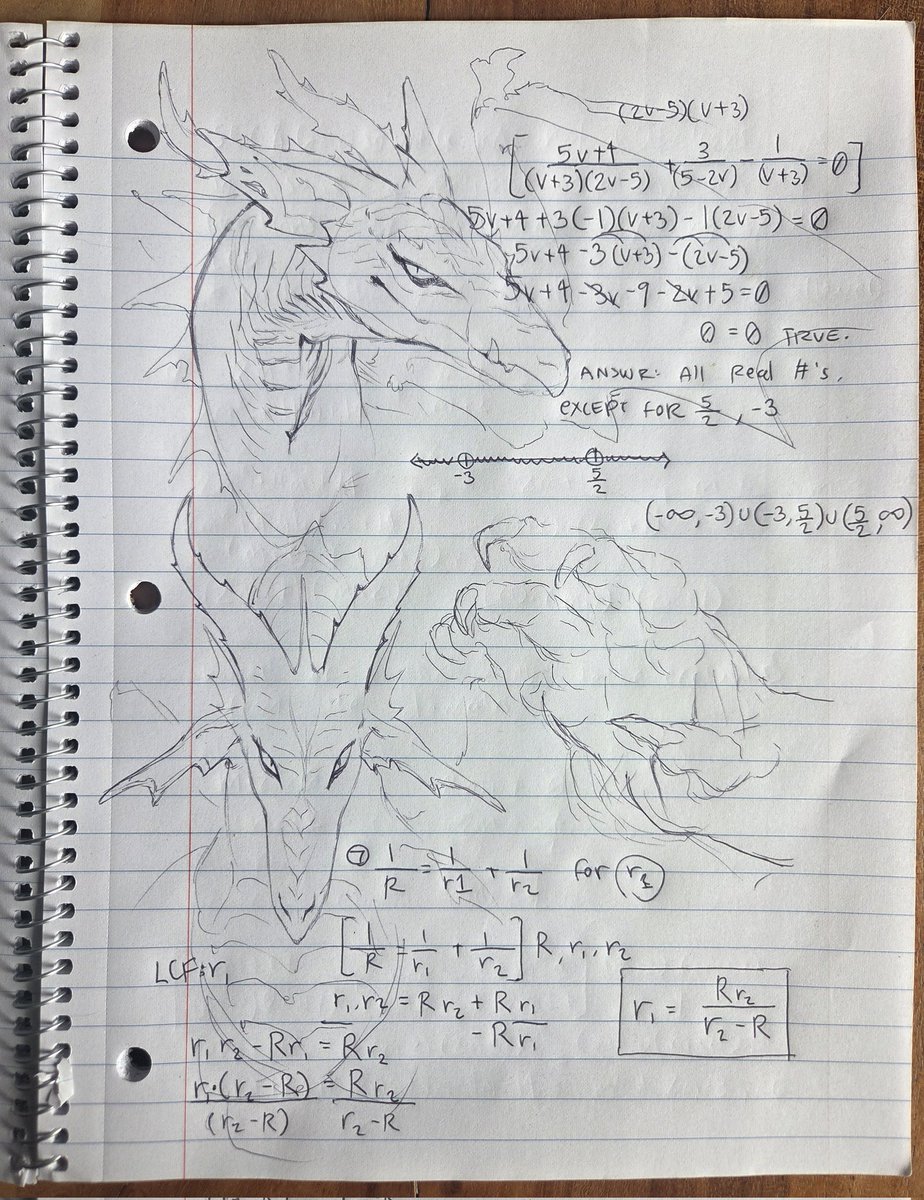 (2v-5)(v+3)
[ (5v+4)/((v+3)(2v-5)) + 3/(5-2v) - 1/(v+3) = 0 ]
5v+4 +3(-1)(v+3) -1(2v-5) = 0
5v+4 -3(v+3) -(2v-5)
5v+4 -3v -9 -2v +5 = 0
0 = 0 TRUE.
ANSWR: All Real #'s.
EXCEPT FOR 5/2, -3
-3 5/2
(-∞,-3)∪(-3,5/2)∪(5/2,∞)
⑦ 1/R = 1/r1 + 1/r2 for r1
[ 1/R = 1/r₁ + 1/r₂ ] R, r₁, r₂
LCF: r₁
r₁.r₂ = Rr₂ + Rr₁
- Rr₁
r₁r₂ - Rr₁ = Rr₂
r₁·(r₂-R)/(r₂-R) = Rr₂/(r₂-R)
r₁ = Rr₂/(r₂-R)